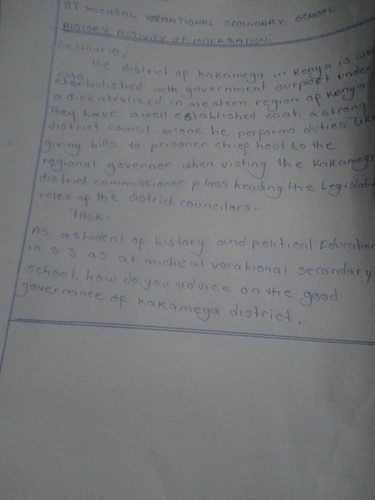 ST MICHEAL VORATIONAL SECONDARY SCHOOL
HISTORY ACTIVITY OF INTERGRATION.
Secinario.
The district of Kakamega in Kenya is well
esterbulished with government ourpost under
a dicentralised in western region of Kenya.
They have a well established coat, a strong
district council alone he performs duties like
giving bills to prisoner chief host to the
regional governer when visting the Kakamega
district commissioner plass heading the legislative
roles of the district councilors.
TASK.
As a student of history and political Education
in s.3 as at micheal vocational secondary
school, how do you advice on the good
governance of Kakamega district.